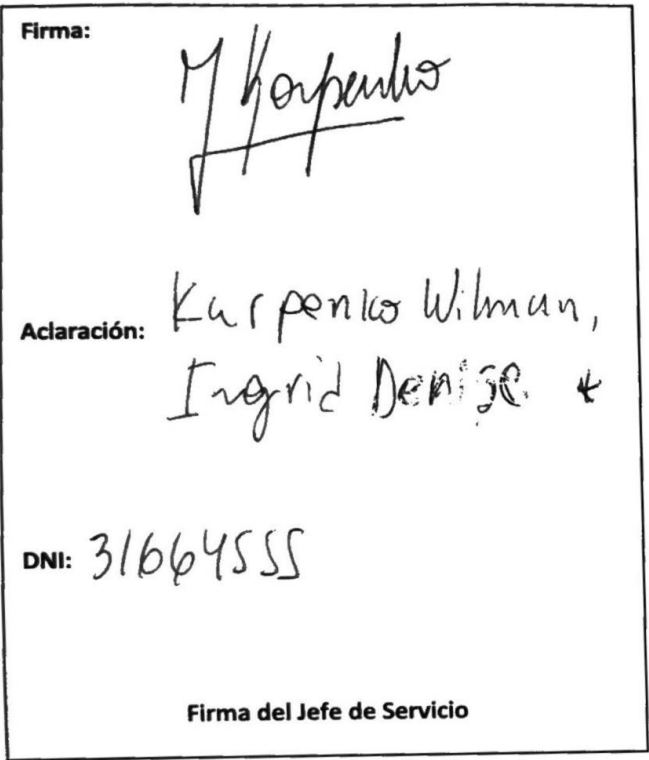 Firma:
Karpenko
Aclaración: Karpenko Wilman,
Ingrid Denise *
DNI: 31664555
Firma del Jefe de Servicio